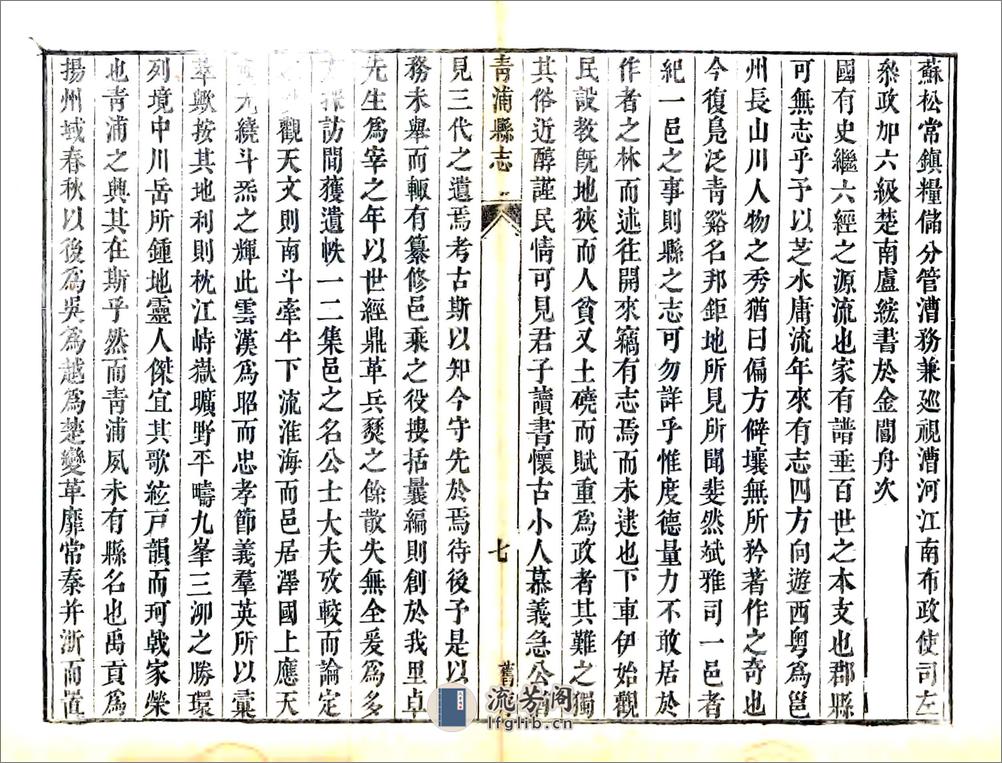 蘇松常鎮糧儲分管漕務兼廵視漕河江南布政使司左
叅政加六級楚南盧綋書於金閶舟次
國有史繼六經之源流也家有譜垂百世之本支也郡縣
可無志乎予以芝水庸流年來有志四方向遊西粤爲邕
州長山川人物之秀猶曰偏方僻壤無所矜著作之奇也
今復鳬泛青谿名邦鉅地所見所聞斐然斌雅司一邑者
紀一邑之事則縣之志可勿詳乎惟度德量力不敢居於
作者之林而述往開來竊有志焉而未逮也下車伊始觀
民設教旣地狹而人貧又土磽而賦重爲政者其難之獨
其俗近醇謹民情可見君子讀書懷古小人慕義急公猶
青浦縣志
七
舊
見三代之遺焉考古斯以知今守先於焉待後予是以
務未舉而輙有纂修邑乘之役搜括曩編則創於我里卓
先生爲宰之年以世經鼎革兵燹之餘散失無全爰爲多
採訪間獲遺帙一二集邑之名公士大夫攷較而論定
觀天文則南斗牽牛下流淮海而邑居澤國上應天
繞斗炁之輝此雲漢爲昭而忠孝節義羣英所以彙
萃歟按其地利則枕江峙嶽曠野平疇九峯三泖之勝環
列境中川岳所鍾地靈人傑宜其歌絃戸韻而珂戟家榮
也青浦之興其在斯乎然而青浦夙未有縣名也禹貢爲
揚州域春秋以後爲吳爲越爲楚變革靡常秦并浙而置
流芳阁
lfglib.cn